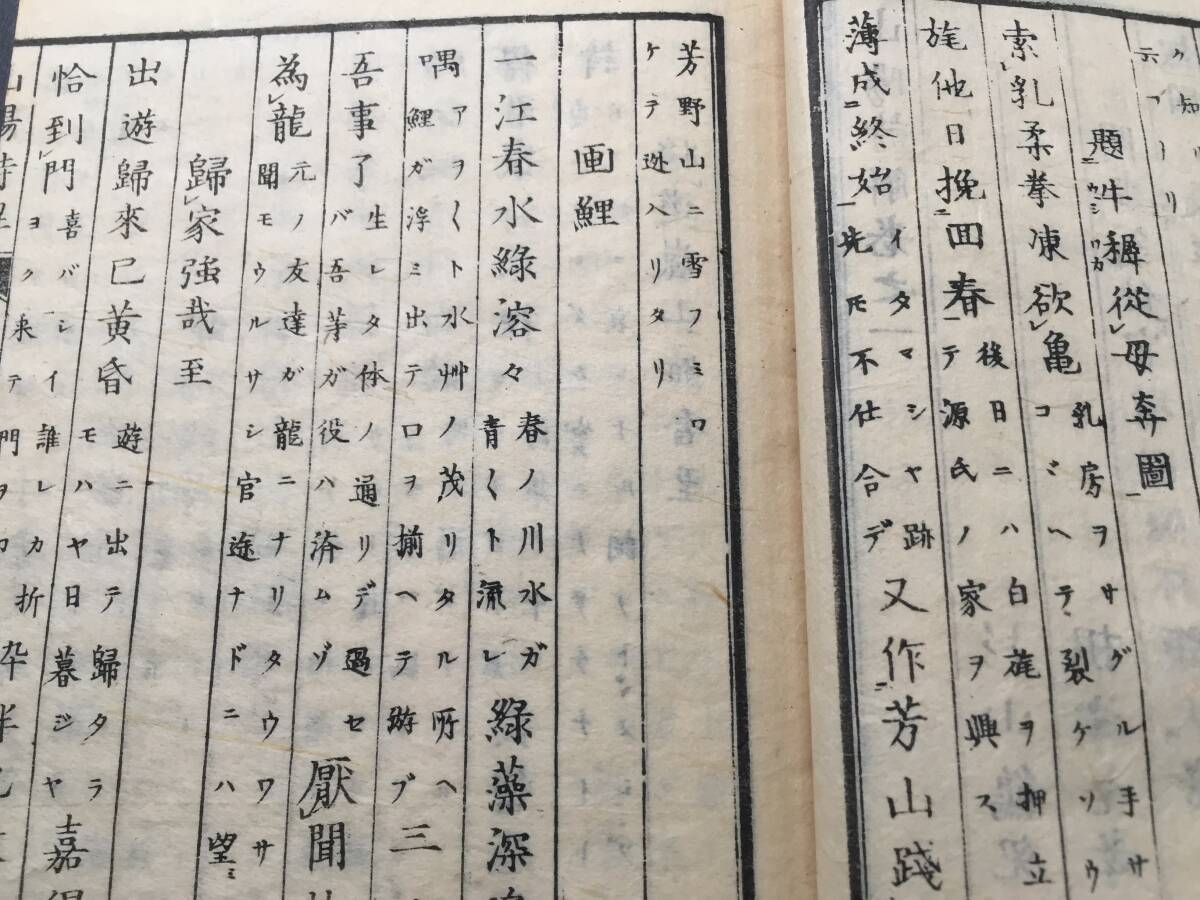 ク知
六フーリ
題牛穉從母奔圖
ウシ ワカ
索乳柔拳凍欲亀
乳房ヲサグル手サ
コミヘテ裂ケソウ
旄他日挽回春
後日ニハ白旄ヲ押立
テ源氏ノ家ヲ興ス
薄成終始
イタマシヤ跡
先モ不仕合デ
又作芳山踐
芳野山ニ雪フミワ
ケテ迯入リタリ
画鯉
一江春水綠溶々
春ノ川水ガ
青クト流レ
綠藻深
喁
アヲクト水艸ノ茂リタル所ヘ
鯉ガ浮ミ出テロヲ揃ヘテ游ブ
三
吾事了
生レタ体ノ通リデ過セ
バ吾芽ガ役ハ済ムゾ
厭聞
為龍
元ノ友達ガ龍ニナリタウワサ
聞モウルサシ官途ナドニハ望ミ
歸家強哉至
出遊歸來已黄昏
遊ニ出テ歸タラ
モハヤ日暮ジヤ
恰到門
喜バシイ誰レカ折
ヨク来テ門ヲ
嘉
山陽詩